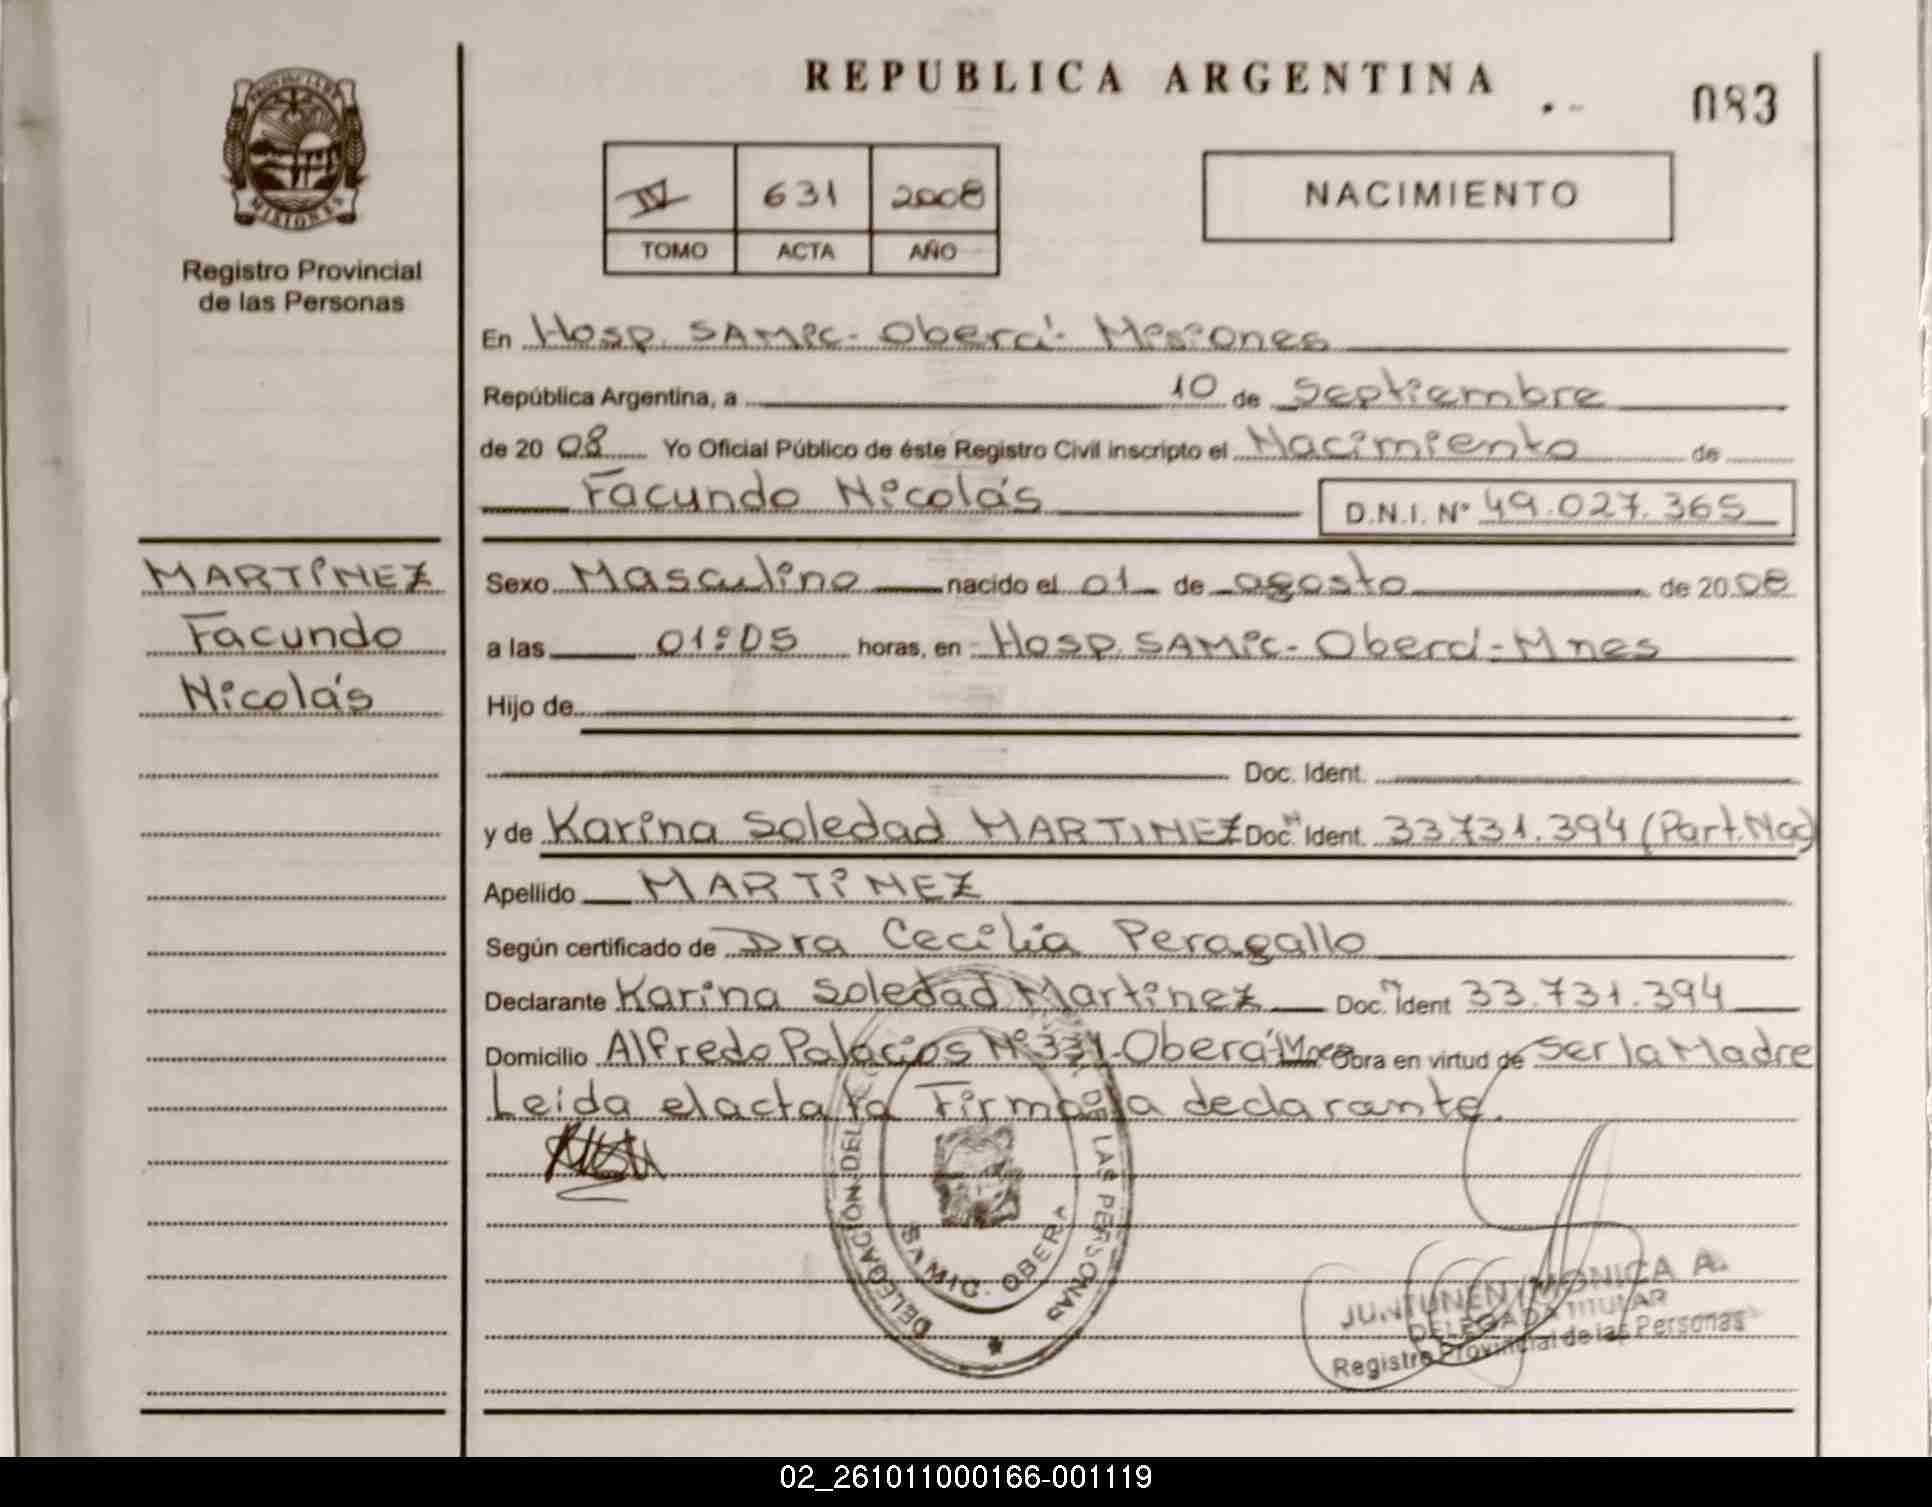 REPUBLICA ARGENTINA
083
PROVINCIA DE
MISIONES
Registro Provincial
de las Personas
IV 631 2008
TOMO ACTA AÑO
NACIMIENTO
En Hosp. SAMIC - Oberá - Misiones
República Argentina, a 10 de Septiembre
de 20 08 Yo Oficial Público de éste Registro Civil inscripto el Nacimiento de
Facundo Nicolás D.N.I. Nº 49.027.365
MARTINEZ
Facundo
Nicolás
Sexo Masculino nacido el 01 de agosto de 20 08
a las 01:05 horas, en Hosp. SAMIC - Oberá - Mnes
Hijo de
Doc. Ident.
y de Karina Soledad MARTINEZ Doc. Ident. 33.731.394 (Part. Nac)
Apellido MARTINEZ
Según certificado de Dra Cecilia Peragallo
Declarante Karina Soledad Martinez Doc. Ident 33.731.394
Domicilio Alfredo Palacios Nº 331 - Oberá - Mnes Obra en virtud de Ser la Madre
Leida el acta la Firma la declarante.
DELEGACIÓN DEL DE LAS PERSONAS
SAMIC - OBERA
JUNTUNEN MONICA A.
DELEGADA TITULAR
Registro Provincial de las Personas
02_261011000166-001119